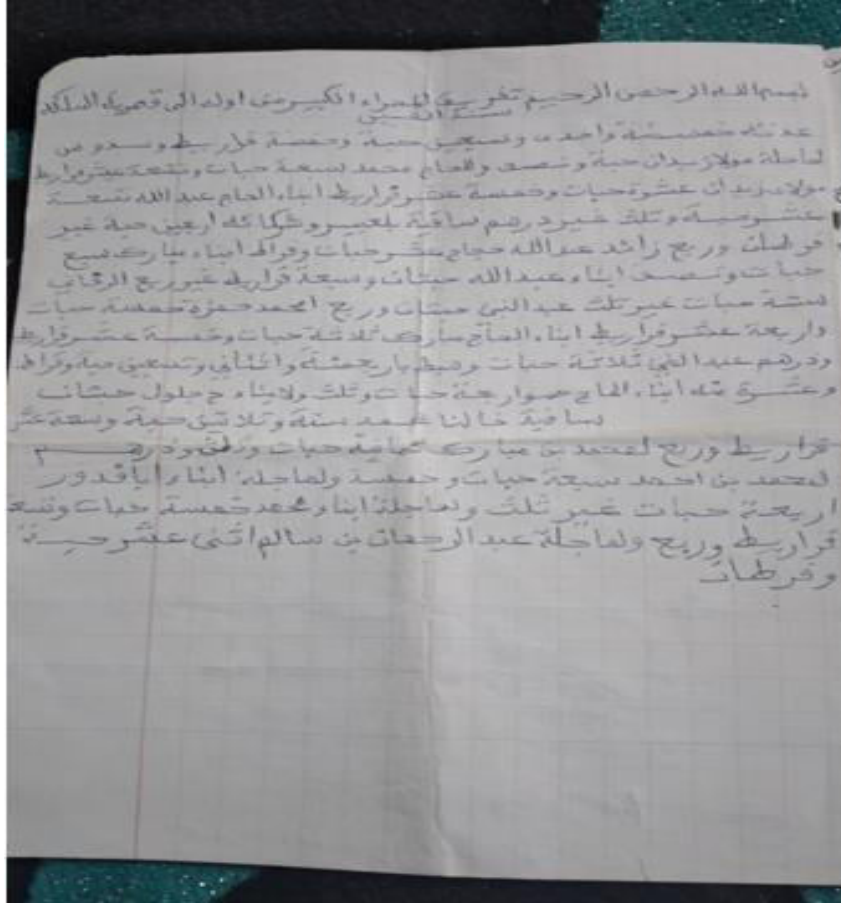 بسم الله الرحمن الرحيم تفريق الكبير من اوله الى
عدته خمسمئة واحدى وتسعين حبة وخمسة قراريط
لماجلة مولاي زيدان حبة ونصف وللحاج محمد تسعة حبات وتسعة عشر قراريط
مولاي زيدان عشرة حبات وخمسة عشر قراريط ابناء الحاج عبد الله تسعة
عشر حبة وثلث غير درهم ساقية وشركائه اربعين حبة غير
قرطان وربع زائد عبد الله حجاج عشر حبات وقراط ابناء مبارك سبع
حبات ونصف ابناء عبد الله حبتان وسبعة قراريط غير ربع
ستة حبات غير ثلث عبد النبي حبتان وربع امحمد حمزة خمسة حبات
واربعة عشر قراريط ابناء الحاج مبارك ثلاثة حبات وخمسة عشر قراريط
ودرهم عبد النبي ثلاثة حبات وتسعين حبة وقراط
وعشرة ابناء الحاج حبات وثلث ولابناء ج جلول حبتان
لساقية خالنا محمد ستة وثلاثين حبة وسبعة عشر
قراريط وربع لمحمد بن مبارك ثمانية حبات ودرهم
لمحمد بن احمد سبعة حبات وخمسة ولماجلة ابناء اباقدور
اربعة حبات غير ثلث ولماجلة ابناء محمد خمسة حبات وتسع
قراريط وربع ولماجلة عبد الرحمان بن سالم اثنى عشر حبة
وقرطان